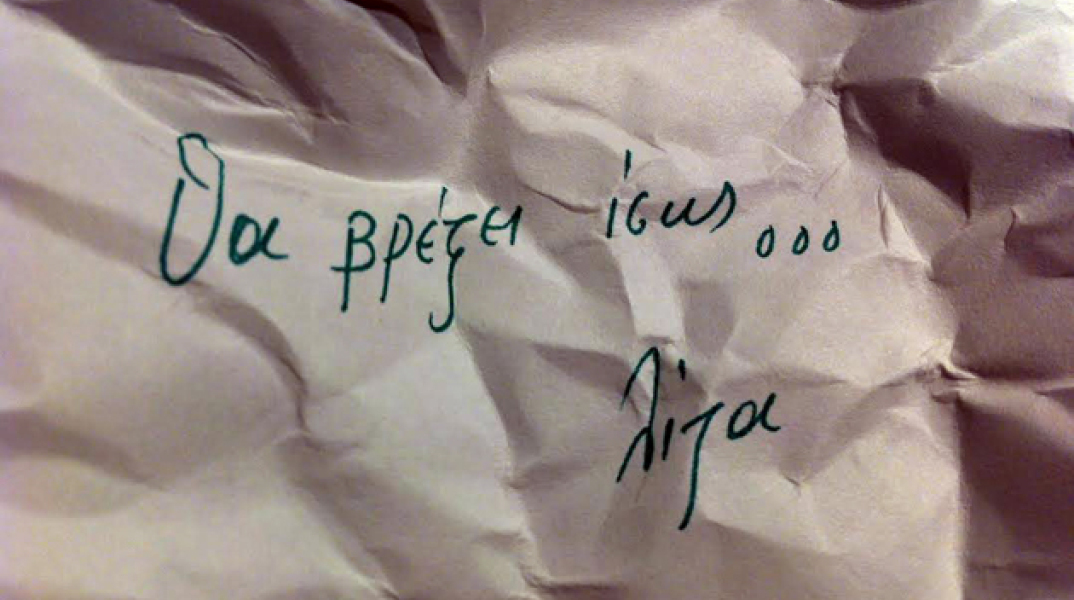 Θα βρέξει ίσως...
λίγα